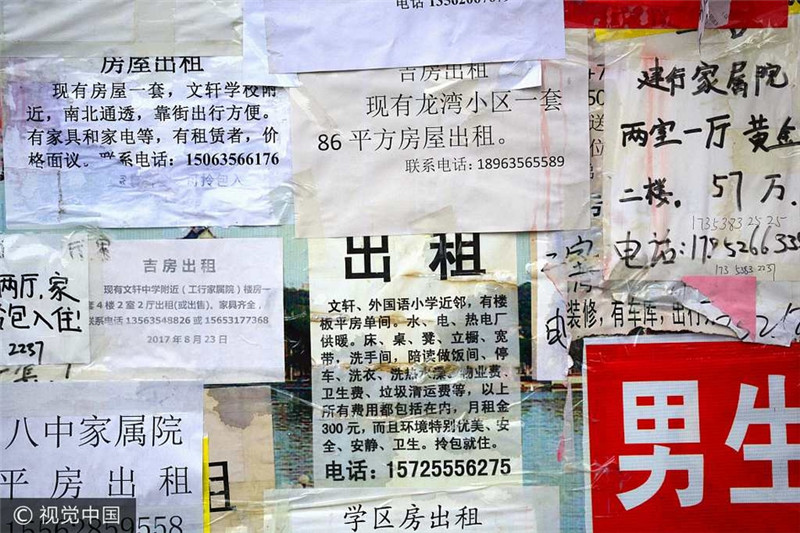 房屋出租
现有房屋一套，文轩学校附
近，南北通透，靠街出行方便。
有家具和家电等，有租赁者，价
格面议。联系电话：15063566176
可拎包入
吉房出租
现有龙湾小区一套
86 平方房屋出租。
联系电话：18963565589
建行家属院
两室一厅 黄金
二楼。57万.
1735383 25 25
电话:
173 5383 2237
两厅.家
包入住!
2237
吉房出租
现有文轩中学附近（工行家属院）楼房一
套 4 楼 2 室 2 厅出租(或出售)，家具齐全，
联系电话 13563548826 或 15653177368
2017 年 8 月 23 日
出 租
文轩、外国语小学近邻，有楼
板平房单间。水、电、热电厂
供暖。床、桌、凳、立橱、宽
带，洗手间，陪读做饭间、停
车、洗衣、洗热水澡、物业费、
卫生费、垃圾清运费等，以上
所有费用都包括在内，月租金
300 元，而且环境特别优美、安
全、安静、卫生。拎包就住。
电话：15725556275
装修，有车库，出行
八中家属院
平 房 出 租
学区房出租
男生
© 视觉中国